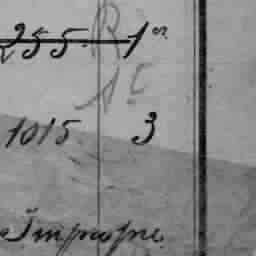 255 1er
1015 3
Impropre